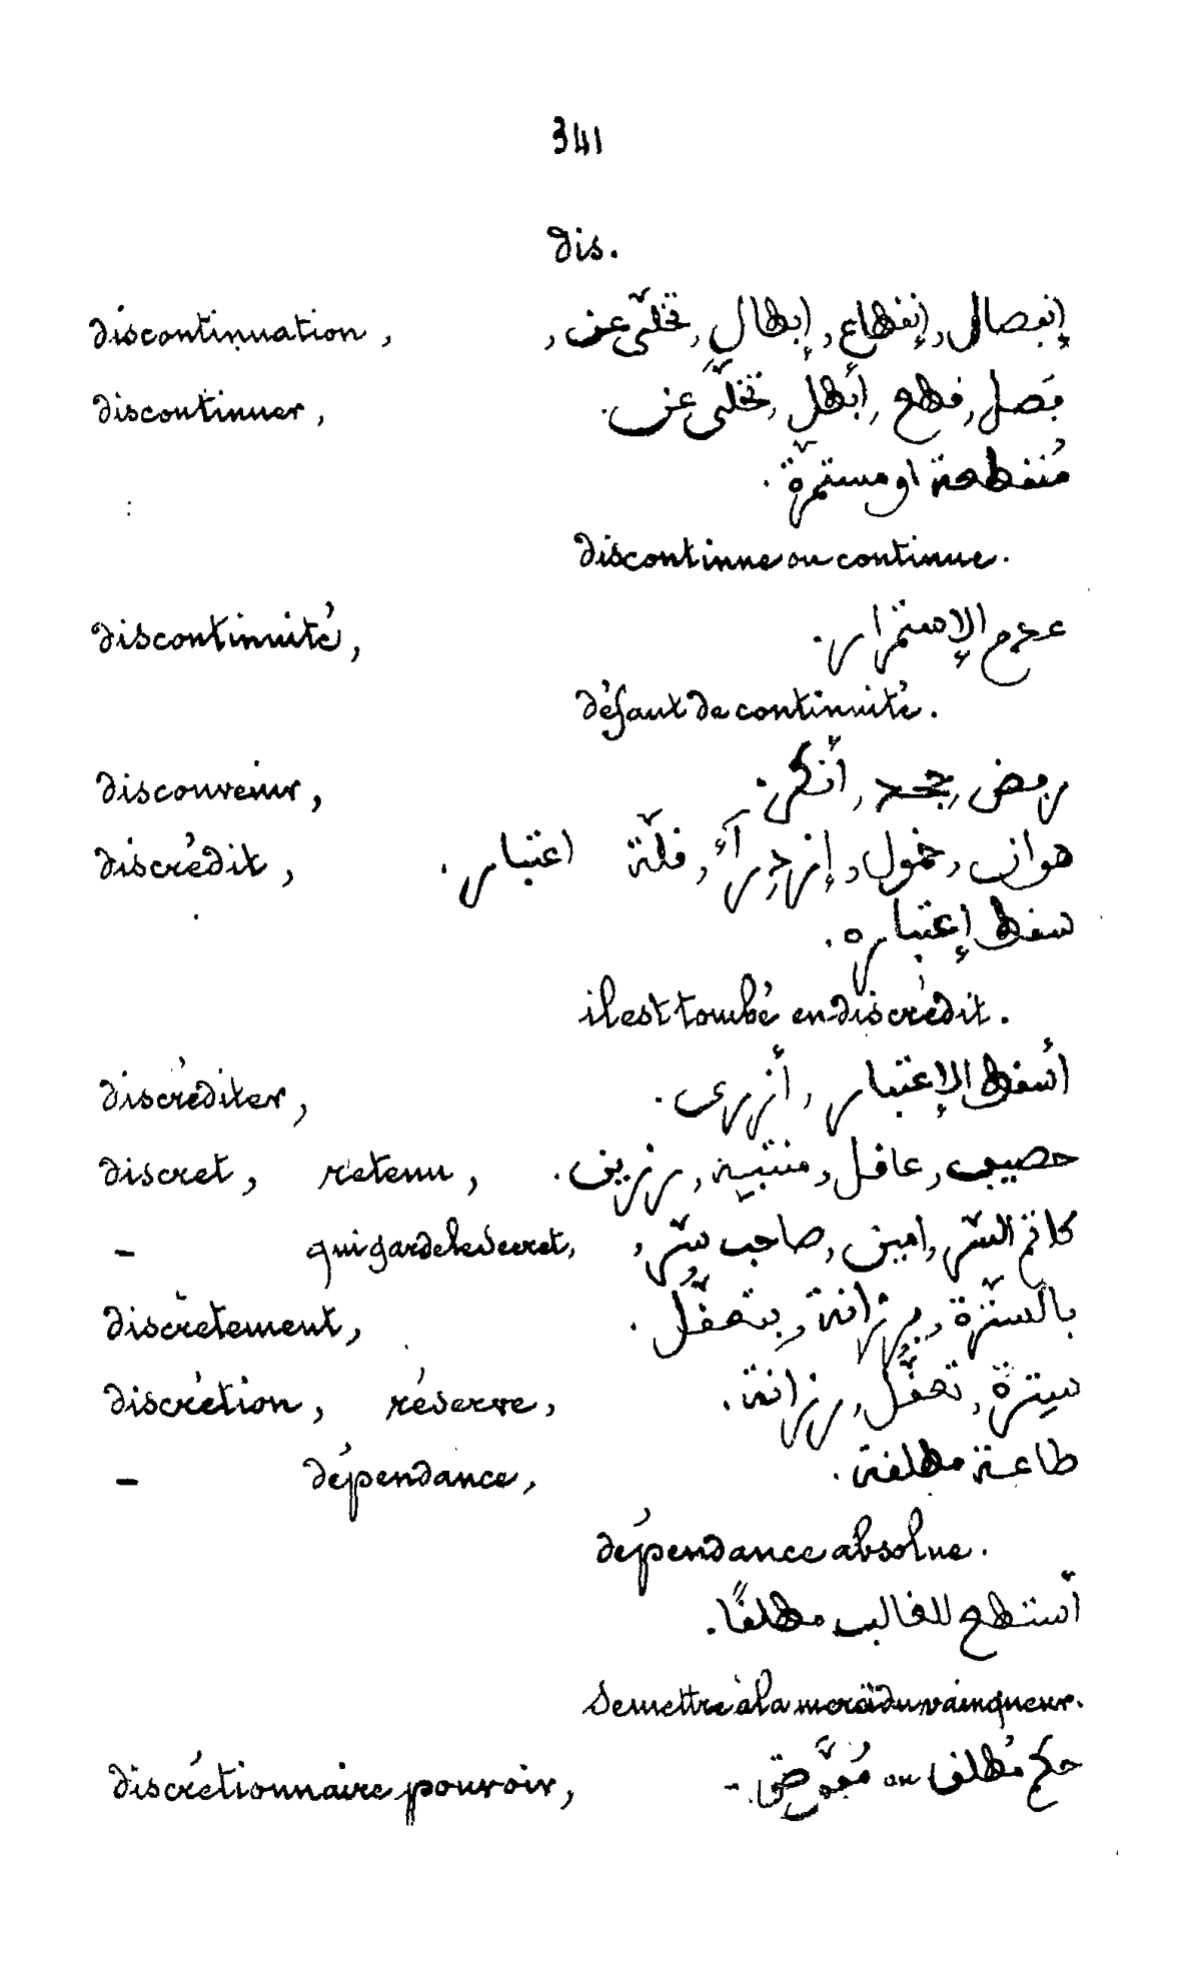 341
dis.
discontinuation, إنفصال, إنقطاع, إبطال, تخلّى عن,
discontinuer, فَصل, قطع, أبطل, تخلّى عن.
مُنقطعة او مستمرّة.
discontinue ou continue.
discontinuité, عدم الإستمرار.
défaut de continuité.
disconvenir, رفض, جحد, أنكر.
discrédit, هوان, خمول, إزدِرآء, قلّة اعتبار.
سقط إعتباره.
il est tombé en discrédit.
discréditer, أسقط الإعتبار, أزرى.
discret, retenu, حصيف, عاقل, منتبيه, رزين.
– qui garde le secret, كاتم السّر, امين, صاحب سّر,
discrètement, بالسّترة, برزانة, بتعقّل.
discrétion, réserve, سيترة, تعقّل, رزانة.
– dépendance, طاعة مطلقة.
dépendance absolue.
أستطع للغالب مطلقًا.
se mettre à la merci du vainqueur.
discrétionnaire pouvoir, حكم مُطلق ou مُفوَّض –